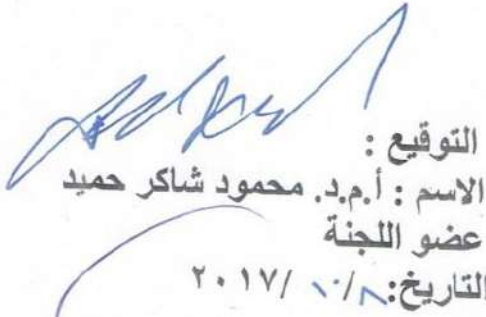 التوقيع :
الاسم : أ.م.د. محمود شاكر حميد
عضو اللجنة
التاريخ: ٨/ ١٠/ ٢٠١٧